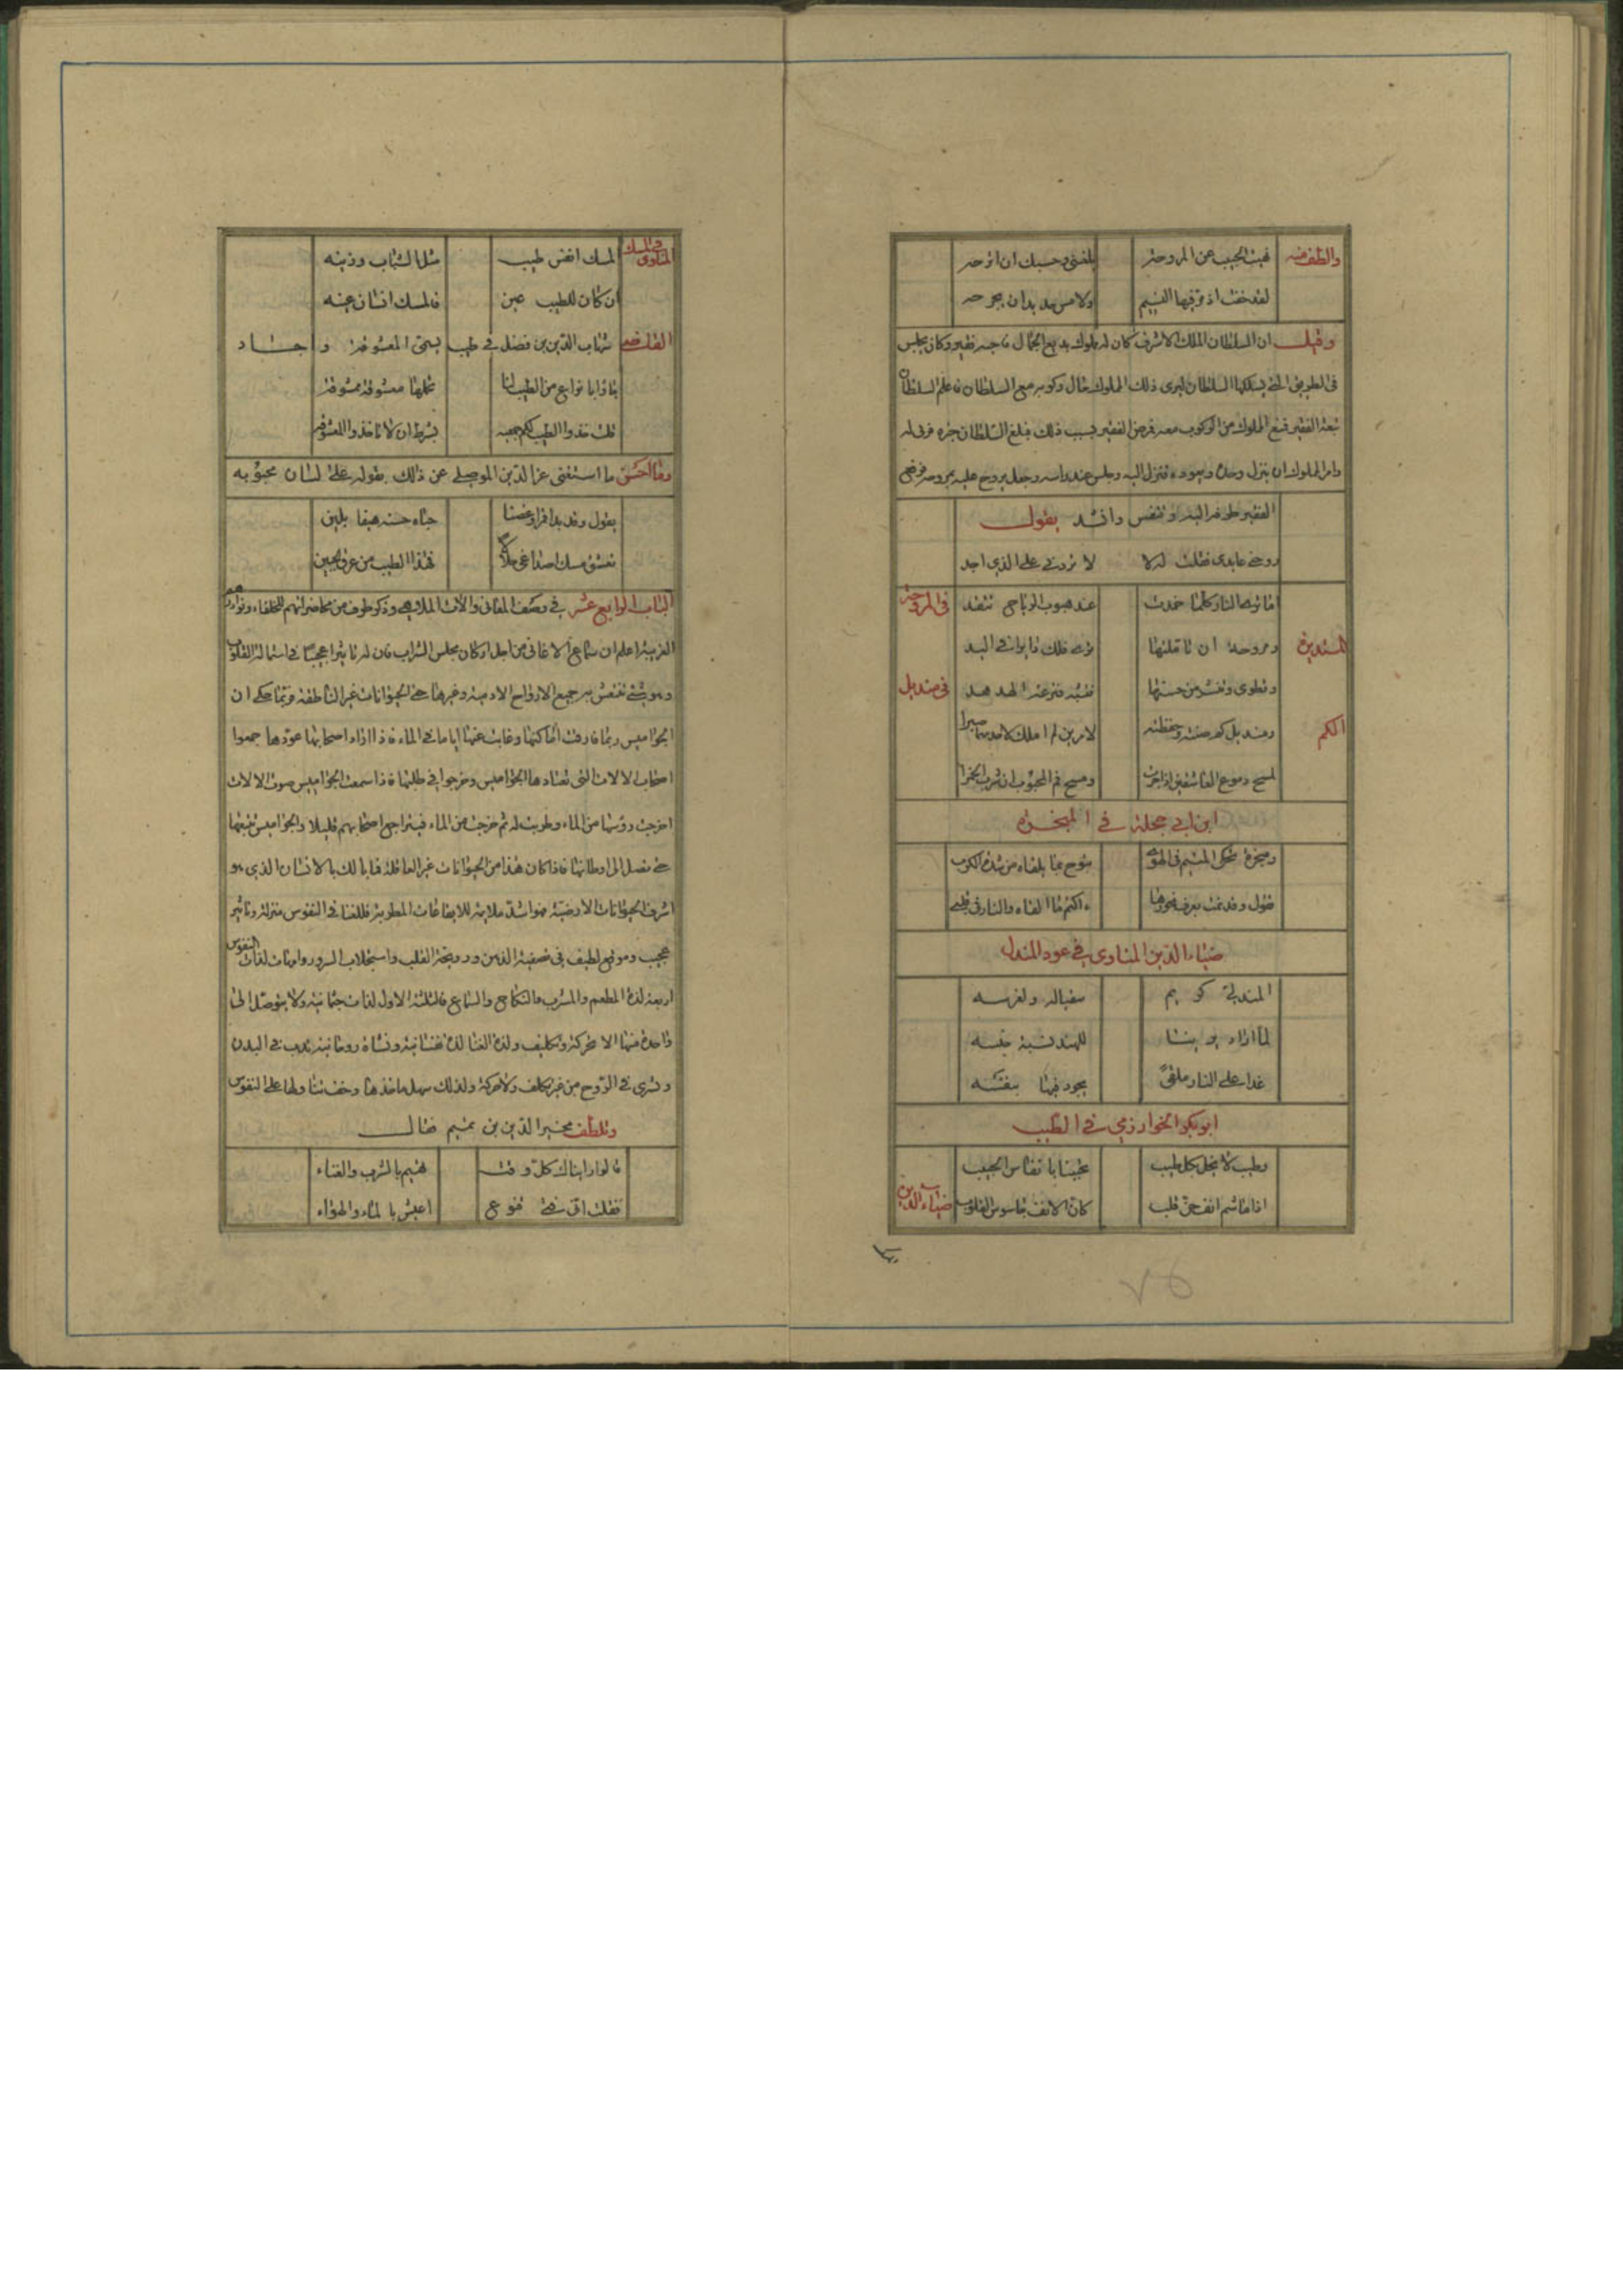 والطف منه نهيت الحبيب عن المروحة بلغنى وحسبك ان اروحه
لقد خفت اذ مر فيها النسيم ولامس خد بدان يجرحه
وقيل ان السلطان الملك الاشرف كان له مملوك بديع الجمال فاحبه فقير وكان يجلس
فى الطريق التى يسلكها السلطان ليرى ذلك المملوك حال ركوبه مع السلطان فاعلم السلطان
فمنع المملوك من الركوب معه فمرض الفقير بسبب ذلك فبلغ السلطان خبره فرق له
وامر المملوك ان ينزل وحده ويعوده فنزل اليه وجلس عند راسه وجعل يروح عليه بمروحة
الفقير طرفه اليه وتنفس وانشد يقول
روحنى عايدى فقلت له لا لا تزدنى على الذي اجد
اما ترى النار كلما خمدت عند هبوب الرياح تتقد
فى المروحة
ومروحة ان تاملتها ترى فلك دايرا فى اليد
وتطوى وتنشر من حسنها فتشبه قنزعة الهدهد
فى منديل
ومنديل لامرين لم املك لاحديهما صبرا
لمسح دموع العاشقين اذا جرت ومسح فم المحبوب ان شرب الخمرا
ابن ابى حجلة فى المبخرة
ومبخرة تحكى المتيم فى الهوى تبوح بما يلقاه من شدة الكرب
تقول وقد نمت بعرف بخورها ءاكتم ما القاه والنار فى قلبى
ضياء الدين المناوى فى عود المندل
المندلى كريم سقيا له ولغرسه
لما اراد للهند نسبة جنسه
غدا على النار ملقى يجود فيها بنفسه
ابو بكر الخوارزمى فى الطيب
وطيب لا يحل بكل طيب يحيينا بانفاس الحبيب
اذا ما شم انف حن قلب كان الانف جاسوس القلوب
ضياء الدين
المناوى فى المسك المسك انفس طيب مثل الشباب وزينه
ان كان للطيب عين فالمسك انسان عينه
القاضى شهاب الدين بن فضل فى طيب يسمى المعشوقة واجاد
نوايع من الطيب لنا معشوقة ممشوقة
قلت خذوا الطيب لكم جميعه بشرط ان لا تاخذوا المعشوقة
وما احسن ما استغنى عز الدين الموصلى عن ذلك بقوله على لسان محبوبه
يقول وقد بدا قمرا وغصنا
تعشق مسك اصداغى فهذا الطيب من عرق الجبين
الباب الرابع عشر فى وصف المغانى والالات الملاهى وذكر طرف من محاضراتهم للخلفاء ونوادرهم
الغريبة اعلم ان سماع الاغانى من اجل اركان مجلس الشراب فان له تاثيرا عجيبا فى استمالة القلوب
وهو شئ تنتعش به جميع الارواح الادمية وغيرها حتى الحيوانات غير الناطقة ومما حكى ان
الجواميس ربما فارقت اماكنها وغابت عنها اياما فى الماء فاذا اراد اصحابها عودها جمعوا
اصحاب الالات التى تعتادها الجواميس وخرجوا فى طلبها فاذا سمعت الجواميس صوت الالات
اخرجت روسها من الماء وطربت له ثم خرجت من الماء فيتراجع اصحابهم قليلا والجواميس تتبعها
حتى تصل الى اوطانها فاذا كان هذا من الحيوانات غير العاقلة فما بالك بالانسان الذي هو
اشرف الحيوانات الارضية فهو اشد ملايمة للايقاعات المطربة فللغنا فى النفوس منزلة وتاثير
عجيب وموقع لطيف فى تصفية الذهن القلب واستجلاب السرور وامهات لذات النفوس
اربعة لذة المطعم والمشرب والنكاح والسماع فالثلثة الاول لذات جثمانية ولا يتوصل الى
واحدة منها الا بحركة وتكليف ولذة الغنا لذة نفسانية ونشاة روحانية تدب فى البدن
وتسرى فى الروح من غير تكلف ولا حركة ولذلك سهل ماخذها وخف تناولها على النفوس
وتلطف مجير الدين بن تميم فقال
قالوا راينك كل وقت تهيم بالشرب والغناء
فقلت انى فتى قنوع اعيش بالماء والهواء